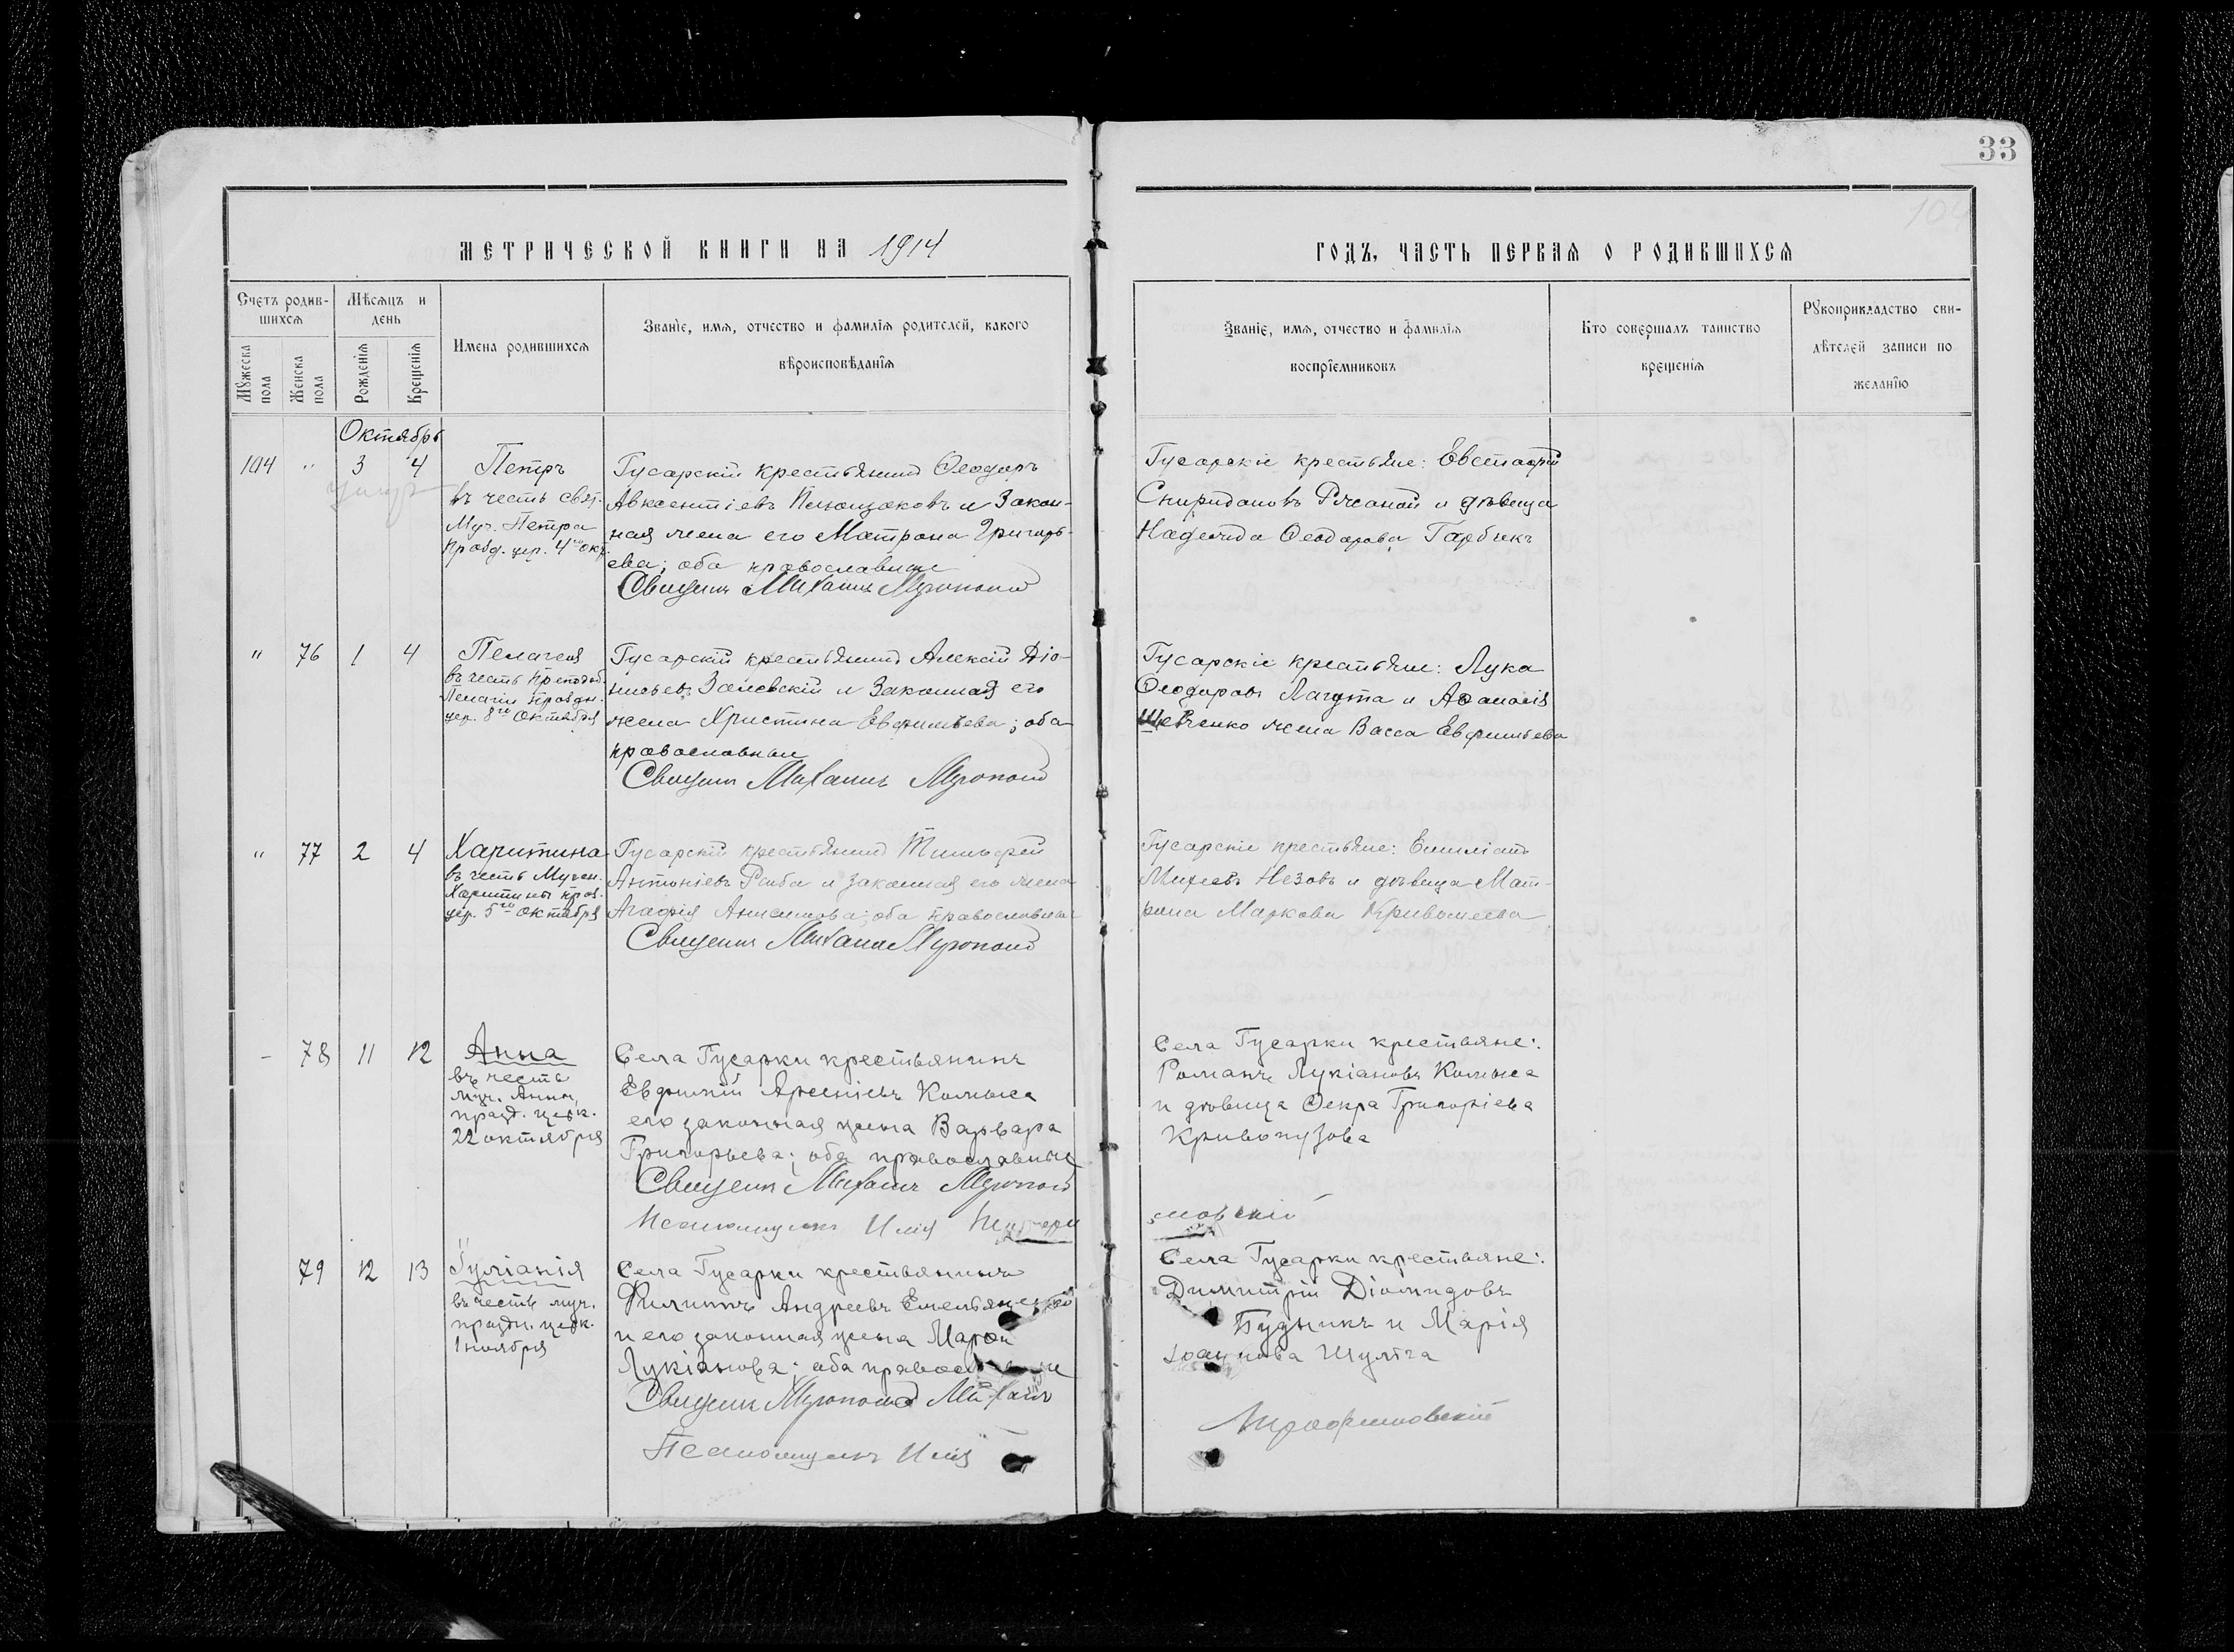 33
МЕТРИЧЕСКОЙ КНИГИ НА 1914
ГОДЪ, ЧАСТЬ ПЕРВАЯ О РОДИВШИХСЯ
Счетъ родив-
шихся
Мужеска
пола
Женска
пола
Мѣсяцъ и
день
Рожденія
Крещенія
Имена родившихся
Званіе, имя, отчество и фамилія родителей, какого
вѣроисповѣданія
Званіе, имя, отчество и фамилія
воспріемниковъ
Кто совершалъ таинство
крещенія
Рукоприкладство сви-
дѣтелей записи по
желанію
Октябрь
104 " 3 4
Петръ
въ честь свят.
Муч. Петра
празд. цер. 4го окт.
Гусарскій крестьянинъ Ѳеодоръ
Авксентіевъ и Закон-
ная жена его Матрона Григорь-
ева; оба православные
Священ. Михаилъ
Гусарскіе крестьяне: Евстафій
Спиридоновъ и дѣвица
Надежда Ѳеодорова
" 76 1 4
Пелагея
въ честь преподоб.
Пелагіи праздн.
цер. 8го Октября
Гусарскій крестьянинъ Алексій Діо-
нисьевъ и Законная его
жена Христина Евфимьева; оба
православные
Священ. Михаилъ
Гусарскіе крестьяне: Лука
Ѳеодоровъ Лагута и Аѳанасія
Шевченко жена Васса Евфимьева
" 77 2 4
Харитина
въ честь Мучен.
Харитины праз.
цер. 5го октября
Гусарскій крестьянинъ Тимофей
Антоніевъ Рыба и законная его жена
Агафія Анисимова; оба православные
Священ. Михаилъ
Гусарскіе крестьяне: Емиліанъ
Михеевъ Незовъ и дѣвица Мат-
рона Маркова Кривошеева
- 78 11 12
Анна
въ честь
муч. Анны,
празд. церк.
22 октября
Села Гусарки крестьянинъ
Евфимій Арсеніевъ Комыса
его законная жена Варвара
Григорьева; оба православные
Священ. Михаилъ
Псаломщикъ Илія
Села Гусарки крестьяне:
Романъ Лукіановъ Комыса
и дѣвица Ѳекла Григоріева
Кривопузова
79 12 13
Іуліанія
въ честь муч.
праздн. церк.
1 ноября
Села Гусарки крестьянинъ
Филиппъ Андреевъ Емельяненко
и его законная жена Марѳа
Лукіанова; оба православные
Священ. Михаилъ
Псаломщикъ Илія
Села Гусарки крестьяне:
Димитрій Діомидовъ
Будникъ и Марія
Шульга